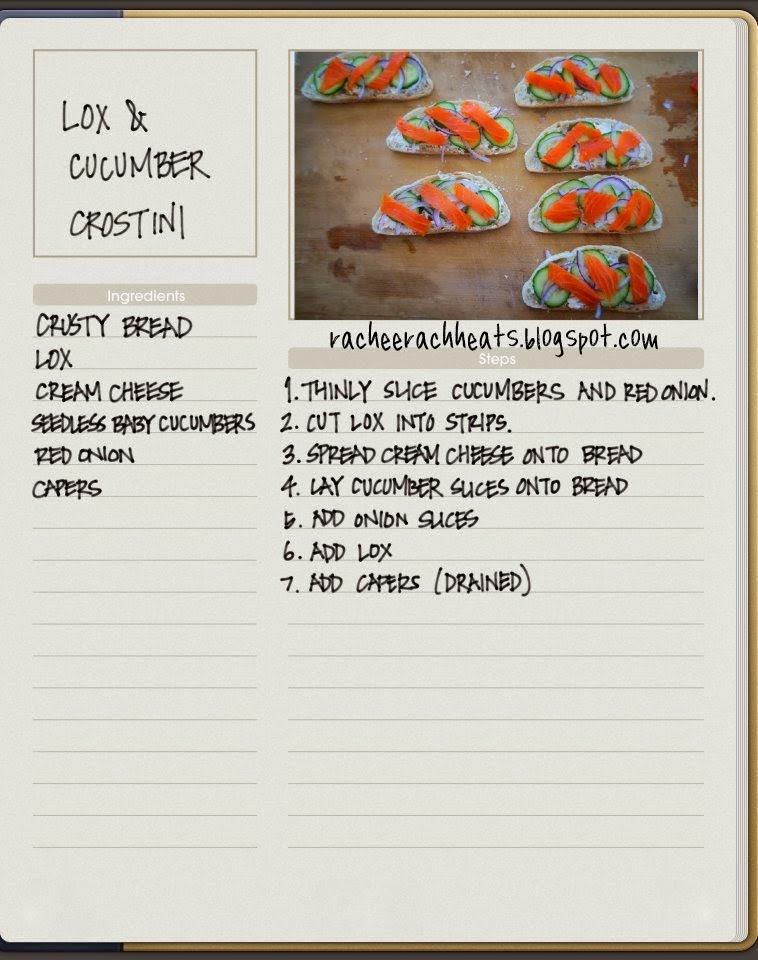 LOX &
CUCUMBER
CROSTINI
Ingredients
CRUSTY BREAD
LOX
CREAM CHEESE
SEEDLESS BABY CUCUMBERS
RED ONION
CAPERS
racheerachheats.blogspot.com
Steps
1. THINLY SLICE CUCUMBERS AND RED ONION.
2. CUT LOX INTO STRIPS.
3. SPREAD CREAM CHEESE ONTO BREAD
4. LAY CUCUMBER SLICES ONTO BREAD
5. ADD ONION SLICES
6. ADD LOX
7. ADD CAPERS (DRAINED)